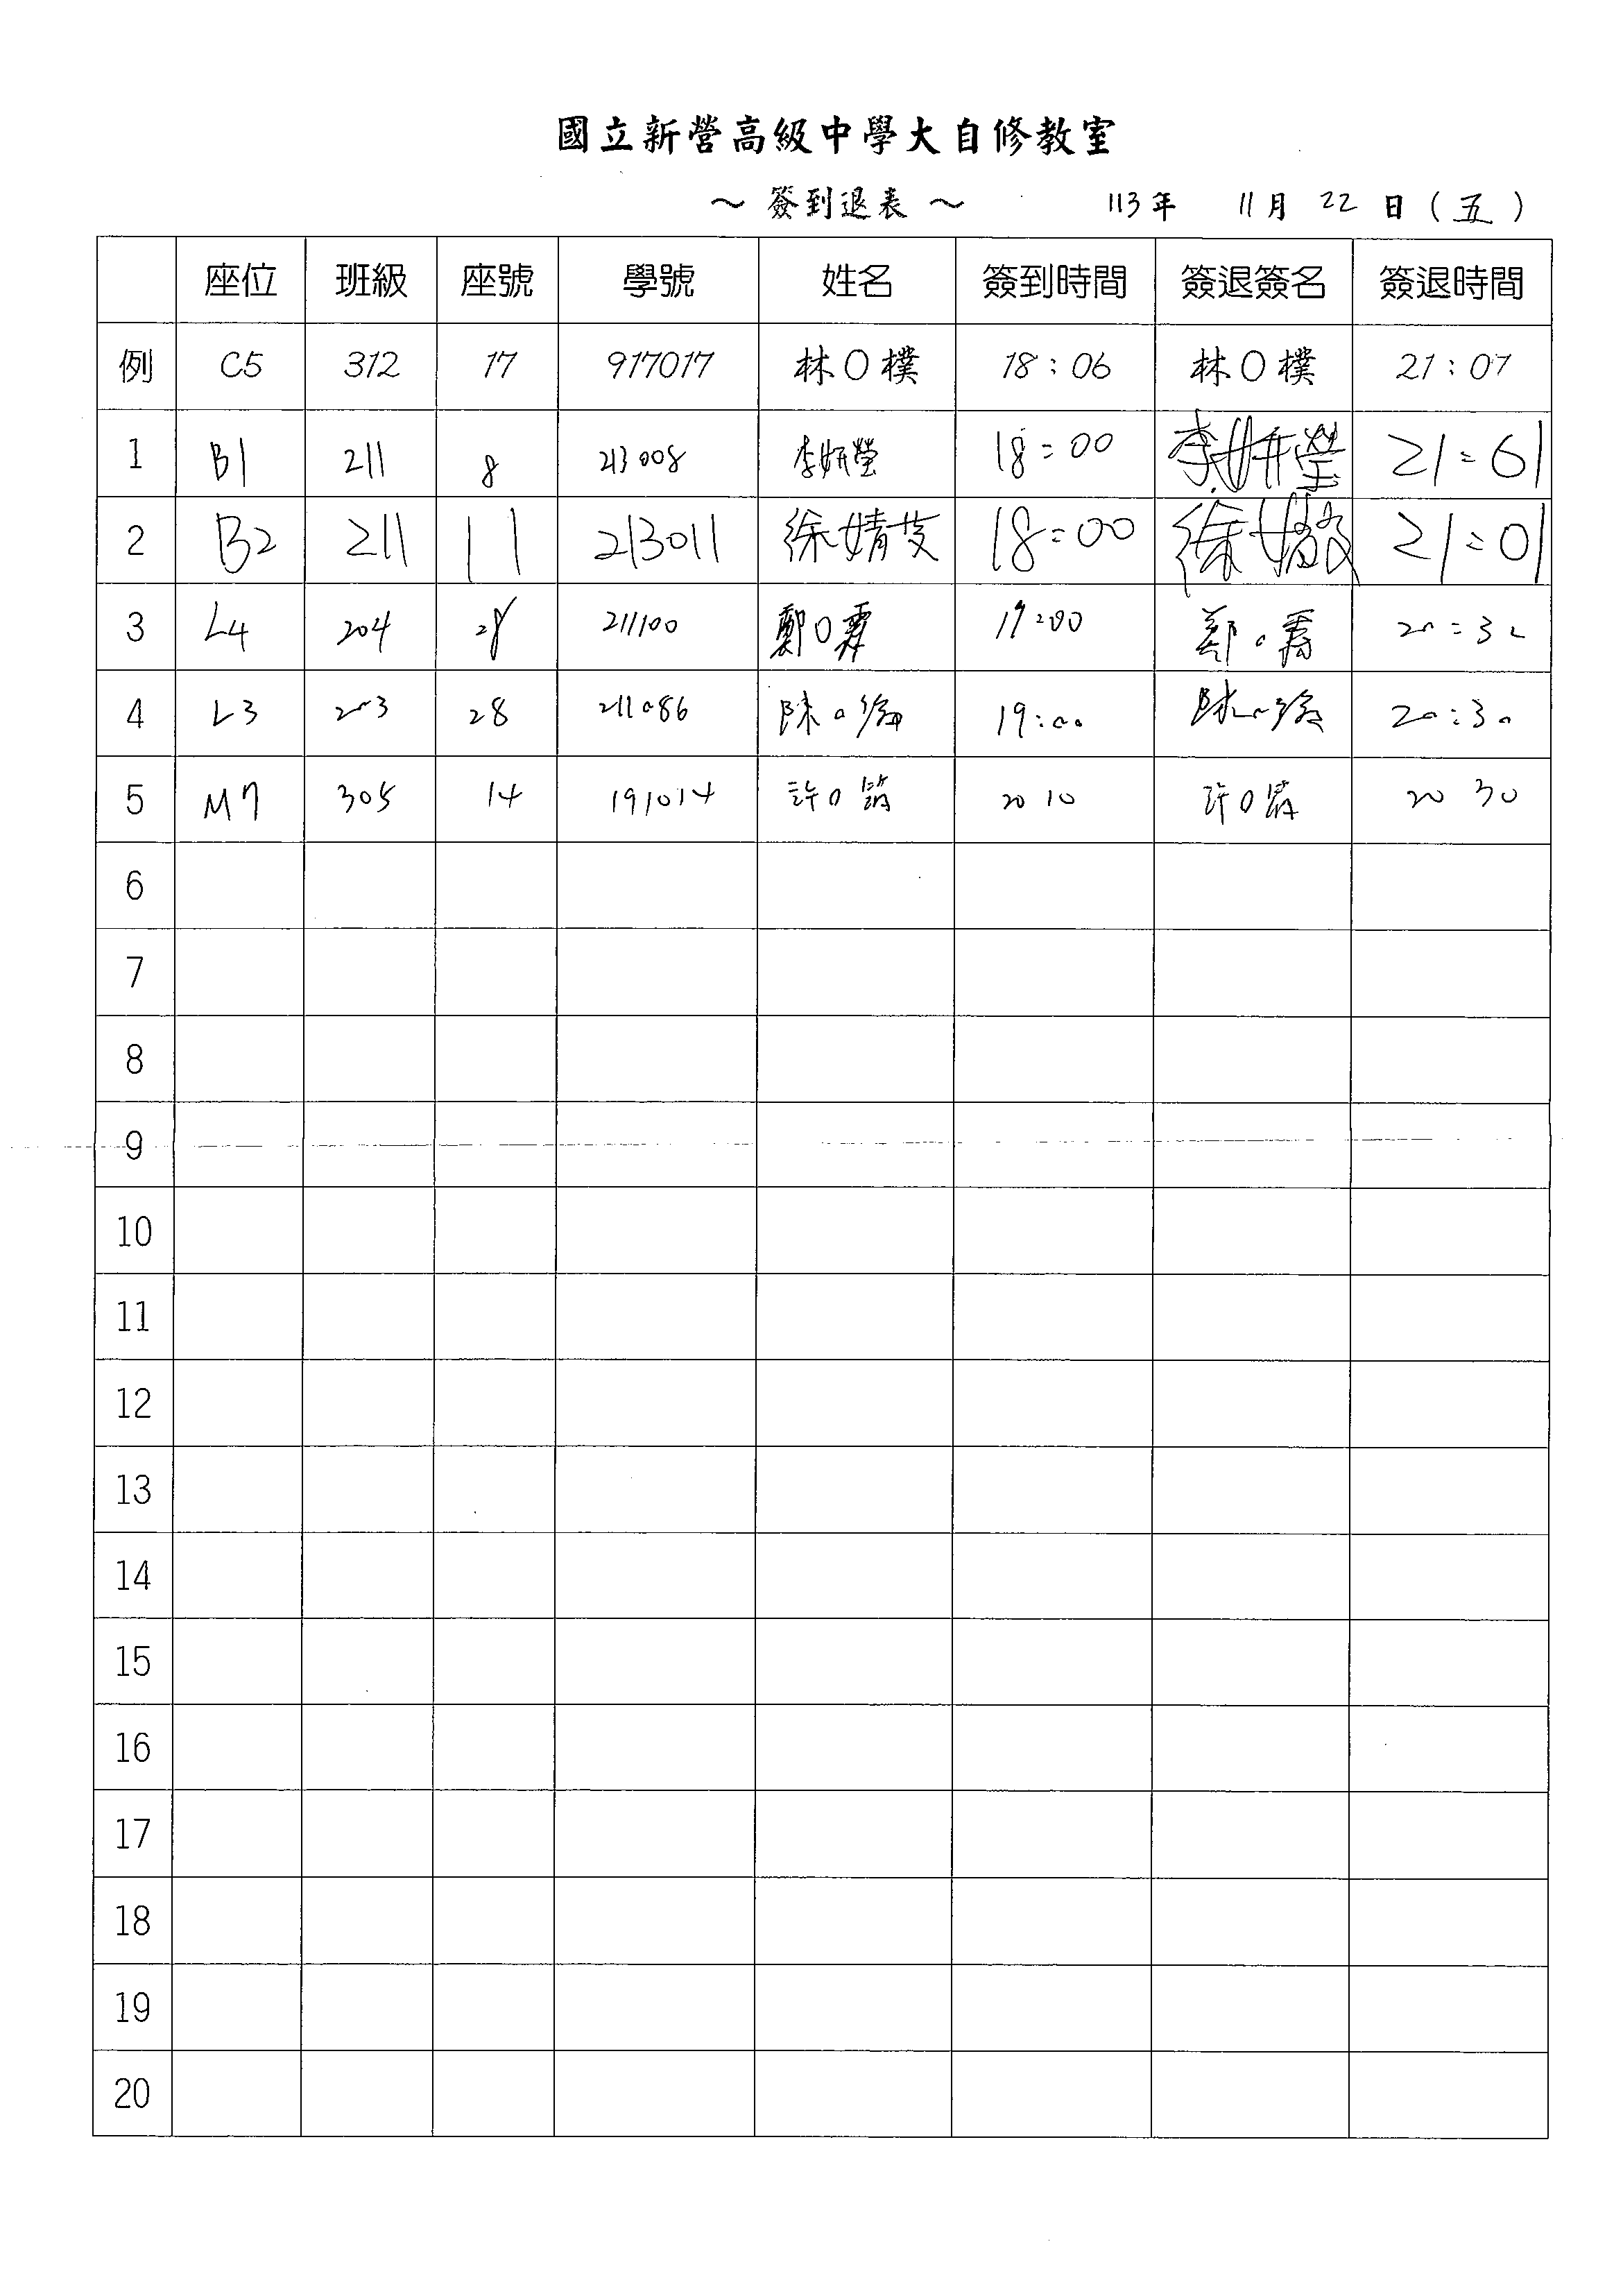 國立新營高級中學大自修教室
～ 簽到退表 ～ 113年 11月 22 日 ( 五 )
座位 班級 座號 學號 姓名 簽到時間 簽退簽名 簽退時間
例 C5 312 17 917017 林O樸 18:06 林O樸 21:07
1 B1 211 8 213008 李妍瑩 18:00 李妍瑩 21:01
2 B2 211 11 213011 徐婧芠 18:00 21:01
3 L4 204 28 211100 鄭O霖 19:00 20:32
4 L3 203 28 211086 陳O 19:00 陳O 20:30
5 M7 305 14 191014 許O 20 10 許O 20 30
6
7
8
9
10
11
12
13
14
15
16
17
18
19
20